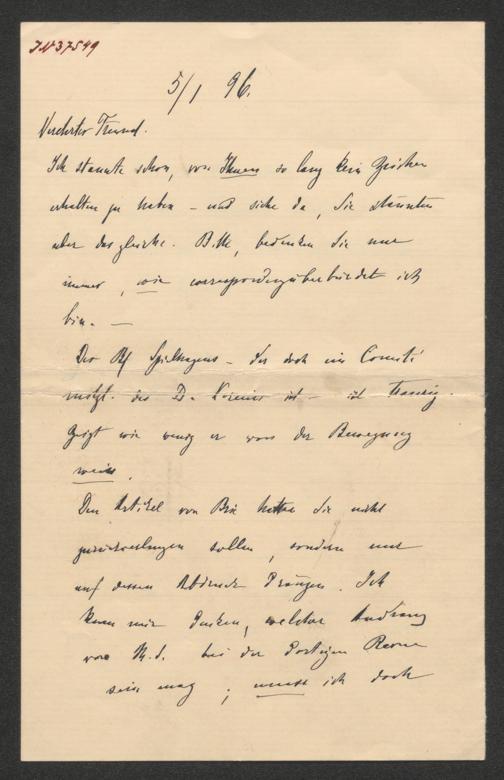 JN 37549
5/1 96.
Verehrter Freund.
Ich staunte schon, von Ihnen so lang kein Zeichen
erhalten zu haben – und siehe da, Sie staunten
über das gleiche. Bitte, bedenken Sie nur
immer, wie correspondenzüberbürdet ich
bin. —
Der Spielhagens – der doch im Comité
des D. Vereins ist – ist traurig.
Zeigt wie wenig er von der Bewegung
weiss.
Den Artikel von hätten Sie nicht
zurückverlangen sollen, sondern nur
auf dessen Abdruck drängen. Ich
kann mir denken, welcher Andrang
von M.S. bei der dortigen Revue
sein mag; musst ich doch